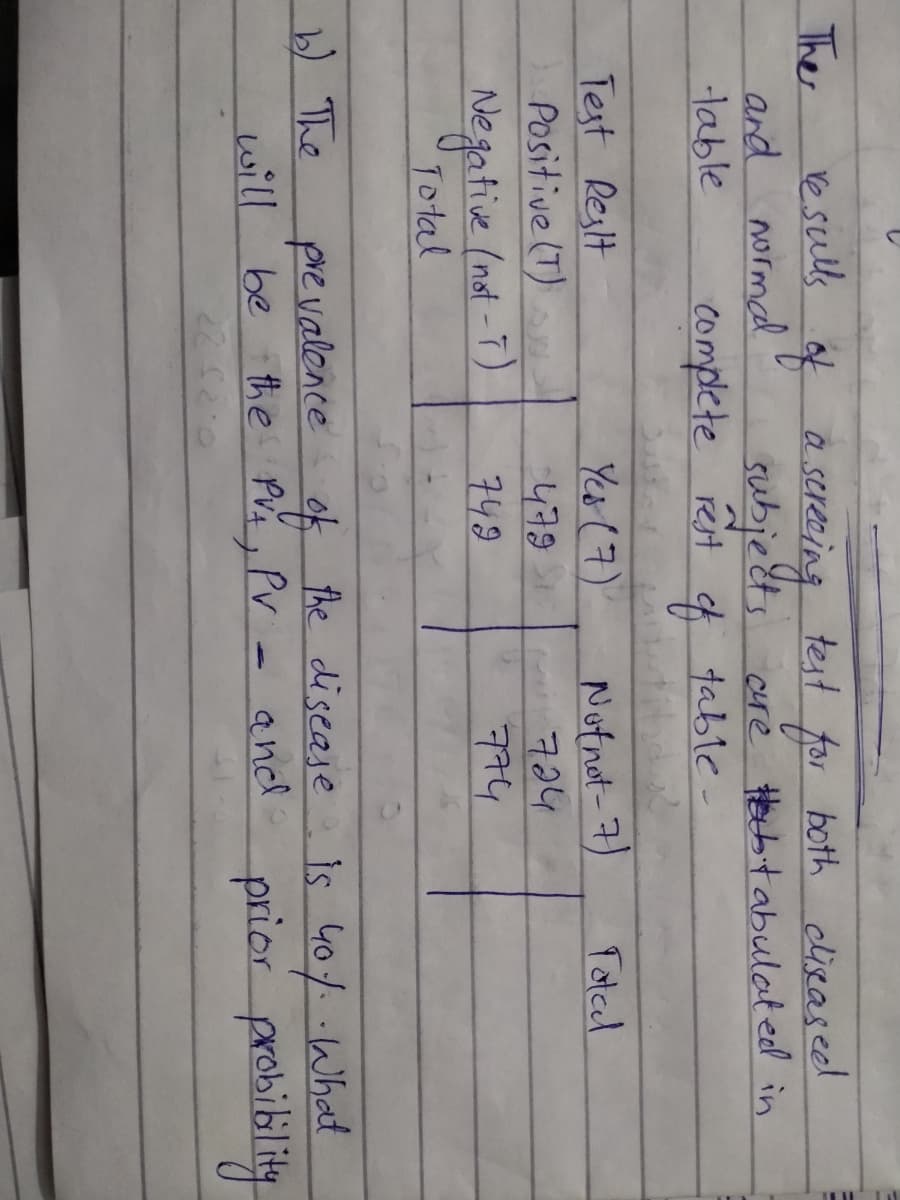 Ther results of a screeing test for both diseased
and normal subjects are tabulated in
table complete rest of table-
Test Reslt Yes (7) Not not-7) Total
Positive (T) 479 724
Negative (not-T) 749 774
Total
b) The prevalence of the disease is 40%. What
will be the PV+, PV- and prior probibility